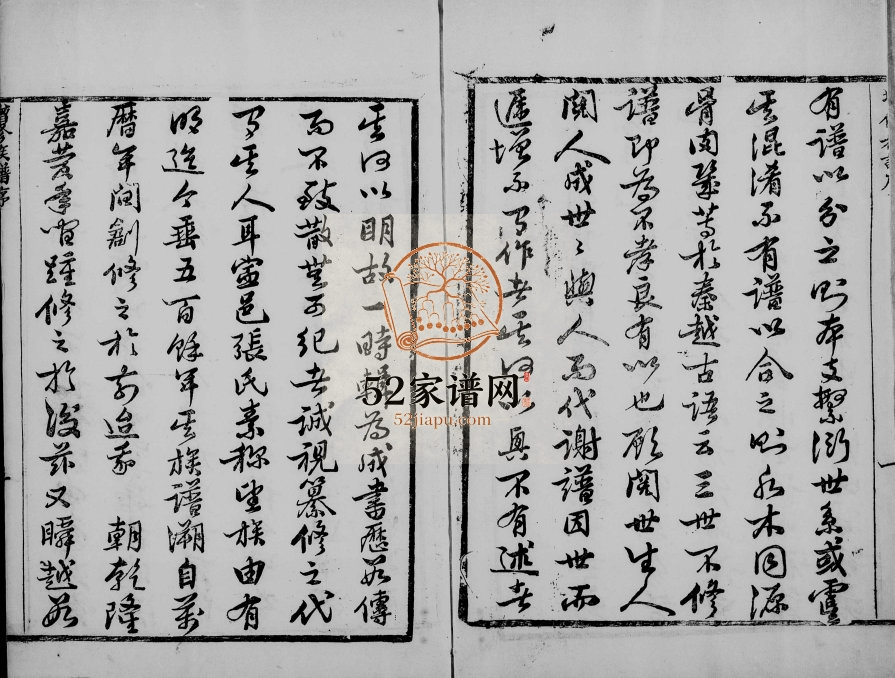 有譜以分之則本支繫衍世系或虞
其混淆不有譜以合之則水木同源
骨肉幾等於秦越古語云三世不修
譜即為不孝良有以也顧閱世生人
閱人成世世與人而代謝譜因世而
遞增不有作者其何以興不有述者
其何以明故一時輯為成書歷久傳
而不致散無可紀者誠視纂修之代
有其人耳靈邑張氏素稱望族由有
明迄今垂五百餘年其族譜溯自萬
曆年間創修之於前迨我 朝乾隆
嘉慶年間踵修之於後茲又瞬越數
修族譜序
52家谱网
52jiapu.com